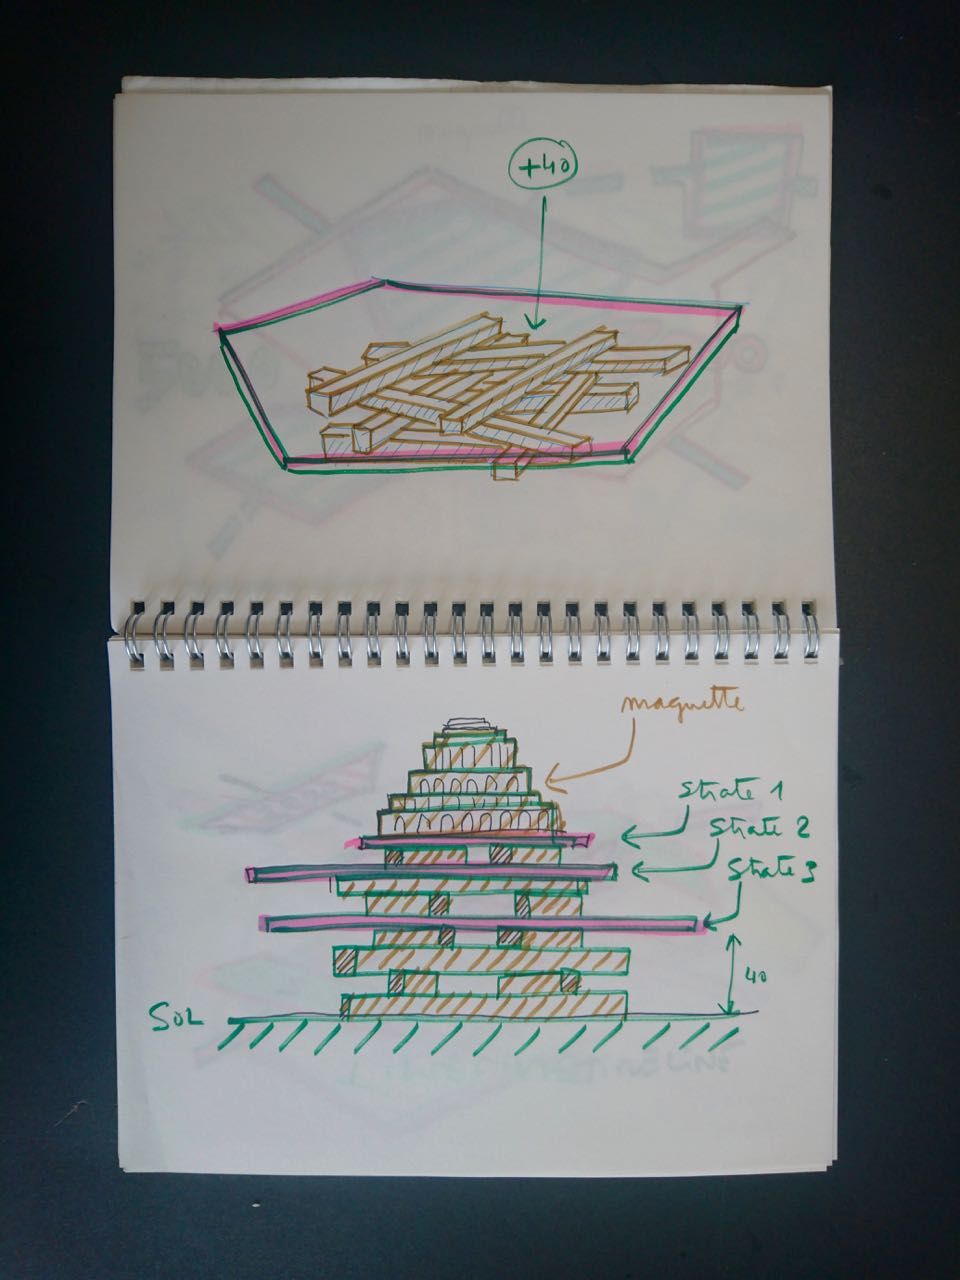 +40
maquette
Strate 1
Strate 2
Strate 3
40
SOL